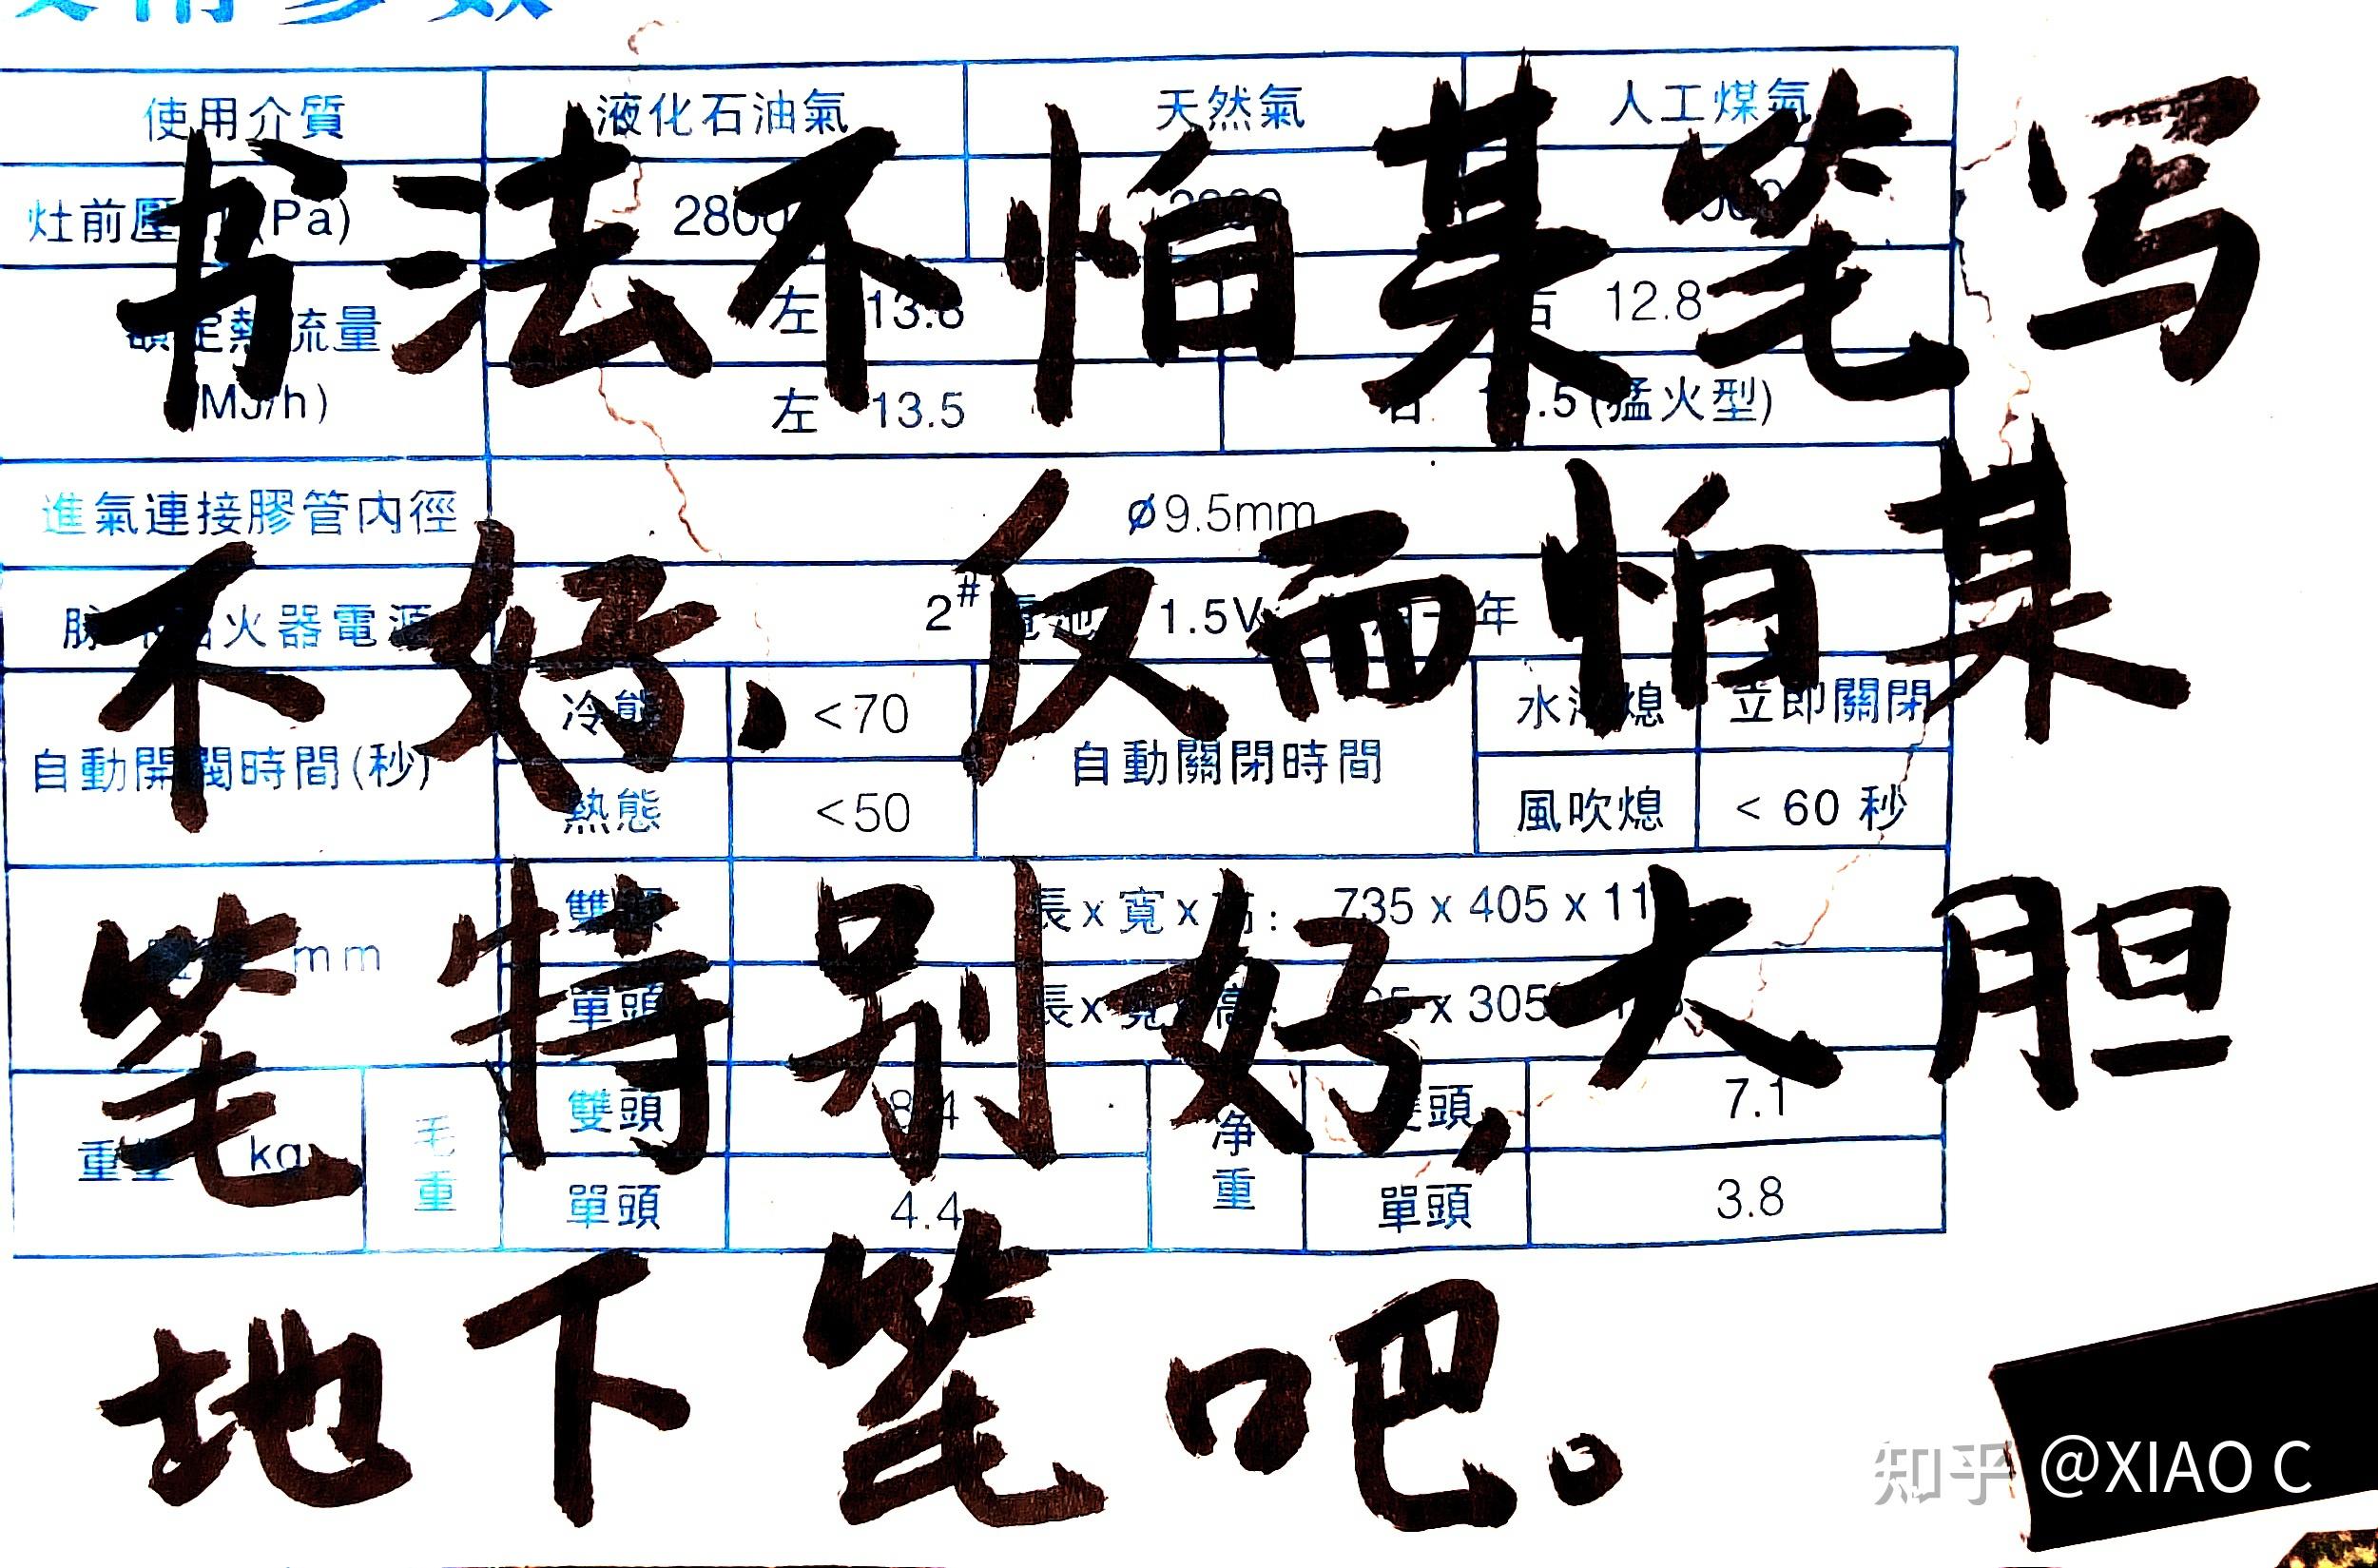 使用介質 液化石油氣 天然氣 人工煤氣
书法不怕某笔写
灶前壓 (Pa) 2800
流量 左 13.8 右 12.8
(MJ/h) 左 13.5 右 .5(猛火型)
進氣連接膠管內徑 ø9.5mm
不好、反而怕某
火器電源 2# 電池 1.5V 年
自動開閥時間(秒) 冷態 <70 自動關閉時間 水 熄 立即關閉
熱態 <50 風吹熄 < 60 秒
笔特别好,大胆
mm 雙頭 長x寬x高: 735 x 405 x 11
單頭 長x寬x高: x 305
重量 kg 毛重 雙頭 8.4 净重 雙頭 7.1
單頭 4.4 單頭 3.8
地下笔吧。
知乎 @XIAO C